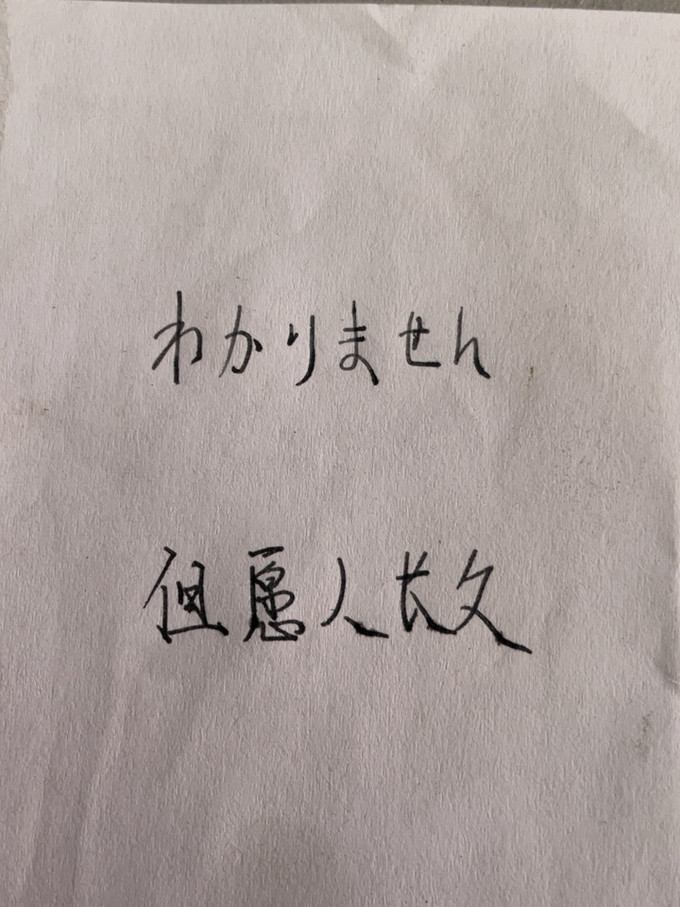 わかりません
但愿人长久